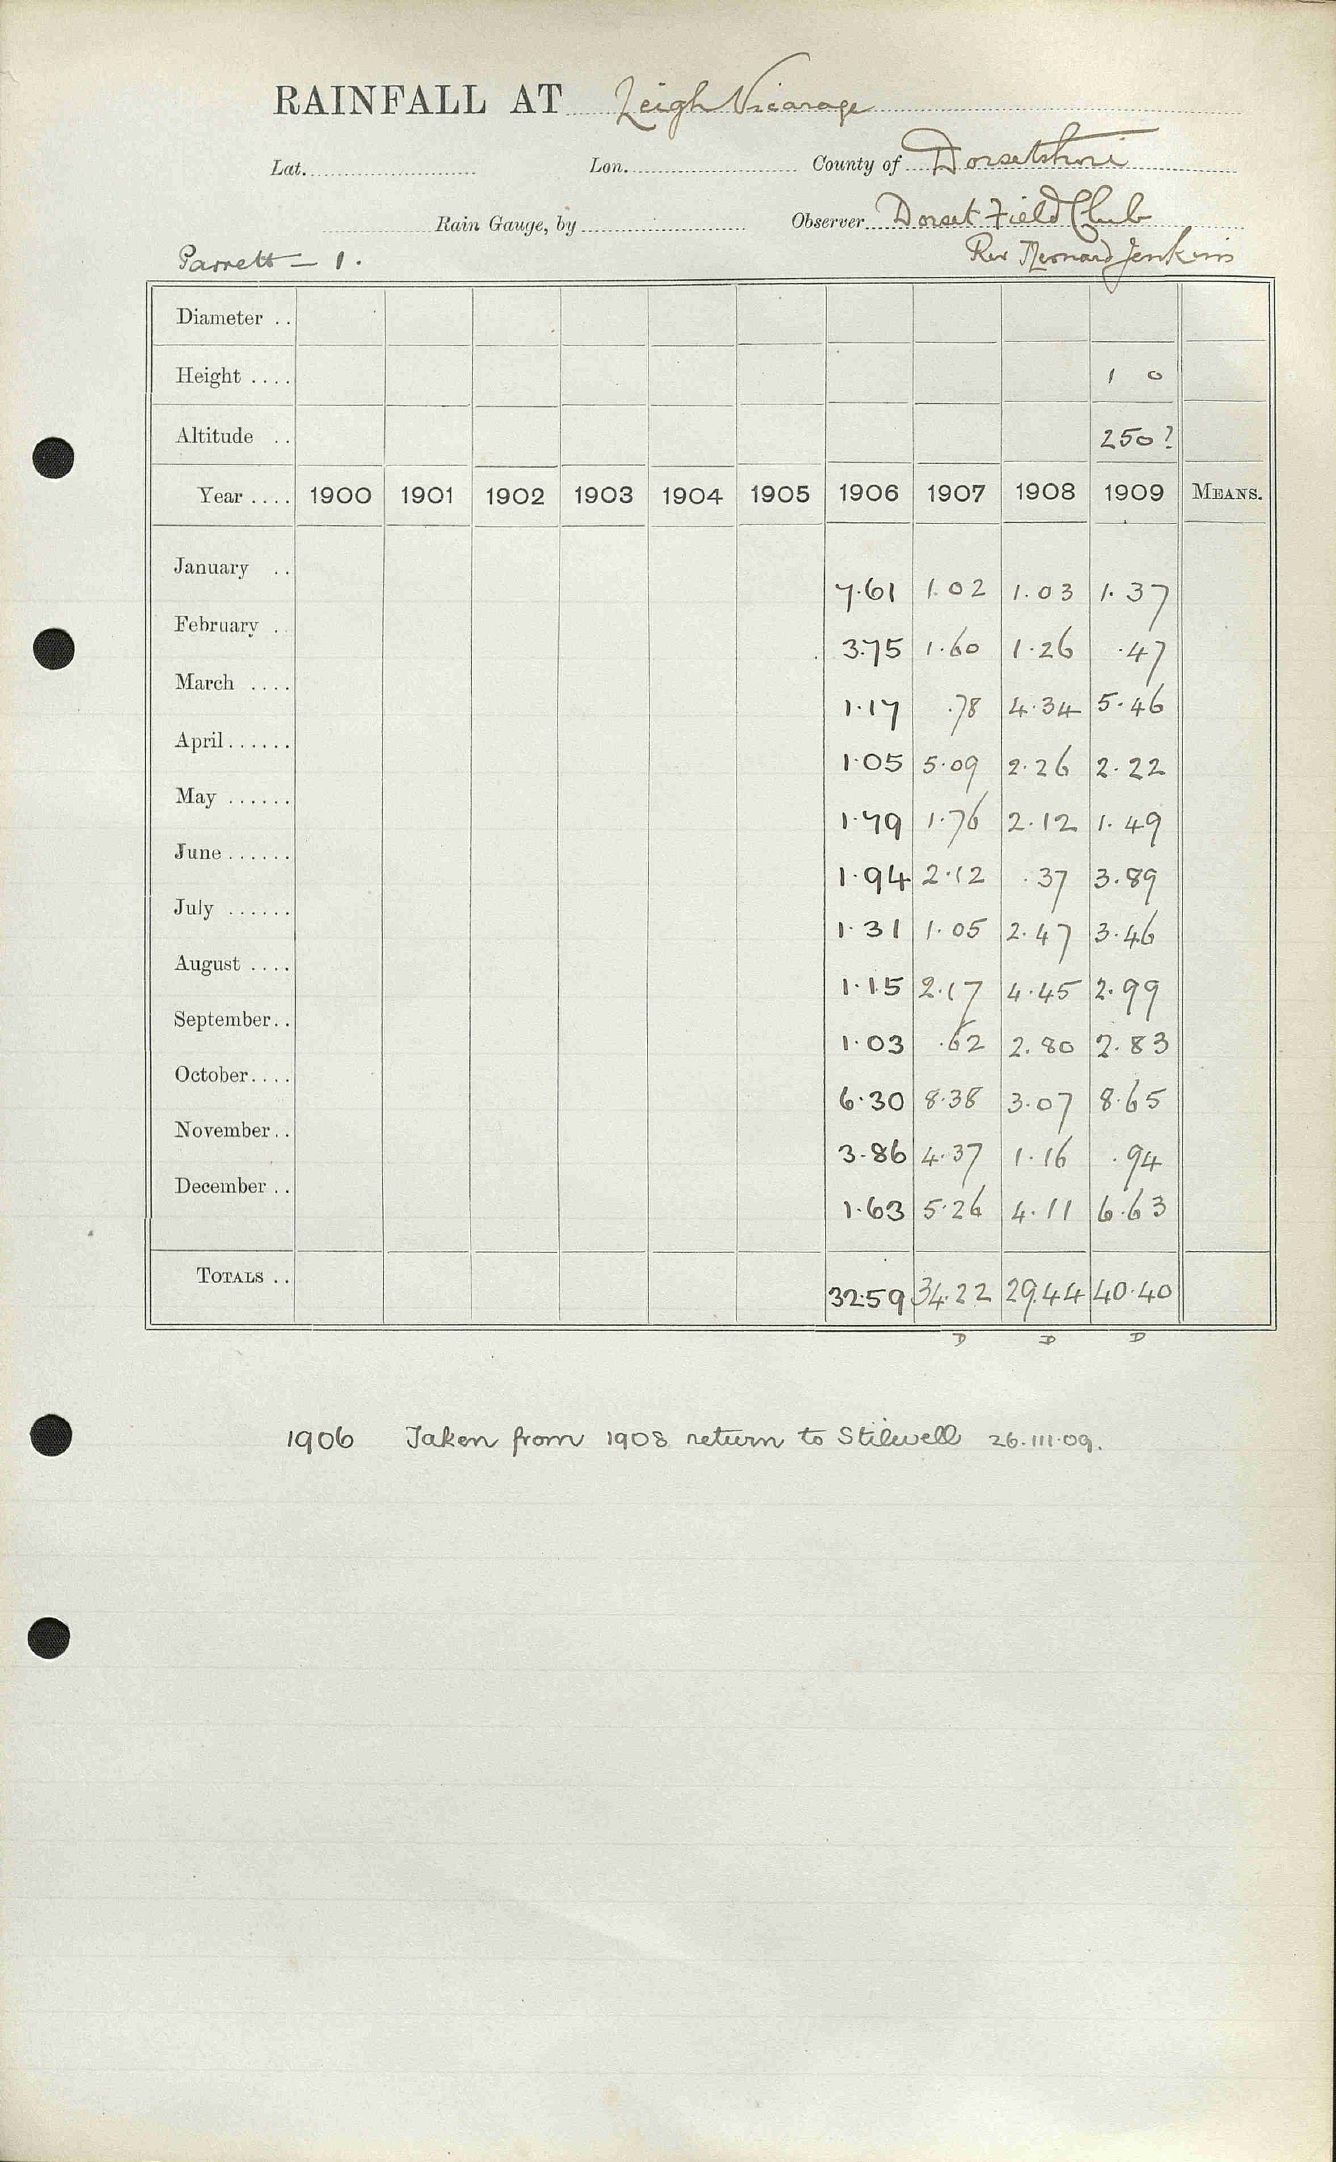 RAINFALL AT Leigh Vicarage
Lat. Lon. County of Dorsetshire
Rain Gauge, by Observer Dorset Field Club
Parrett – 1. Rev Jenkins
Diameter ..
Height .... 1 0
Altitude .. 250?
Year .... 1900 1901 1902 1903 1904 1905 1906 1907 1908 1909 MEANS.
January .. 7.61 1.02 1.03 1.37
February .. 3.75 1.60 1.26 .47
March .... 1.17 .78 4.34 5.46
April...... 1.05 5.09 2.26 2.22
May ...... 1.79 1.76 2.12 1.49
June...... 1.94 2.12 .37 3.89
July ...... 1.31 1.05 2.47 3.46
August .... 1.15 2.17 4.45 2.99
September.. 1.03 .62 2.80 2.83
October.... 6.30 8.38 3.07 8.65
November.. 3.86 4.37 1.16 .94
December .. 1.63 5.26 4.11 6.63
TOTALS .. 32.59 34.22 29.44 40.40
D D D
1906 Taken from 1908 return to Stilwell 26.III.09.